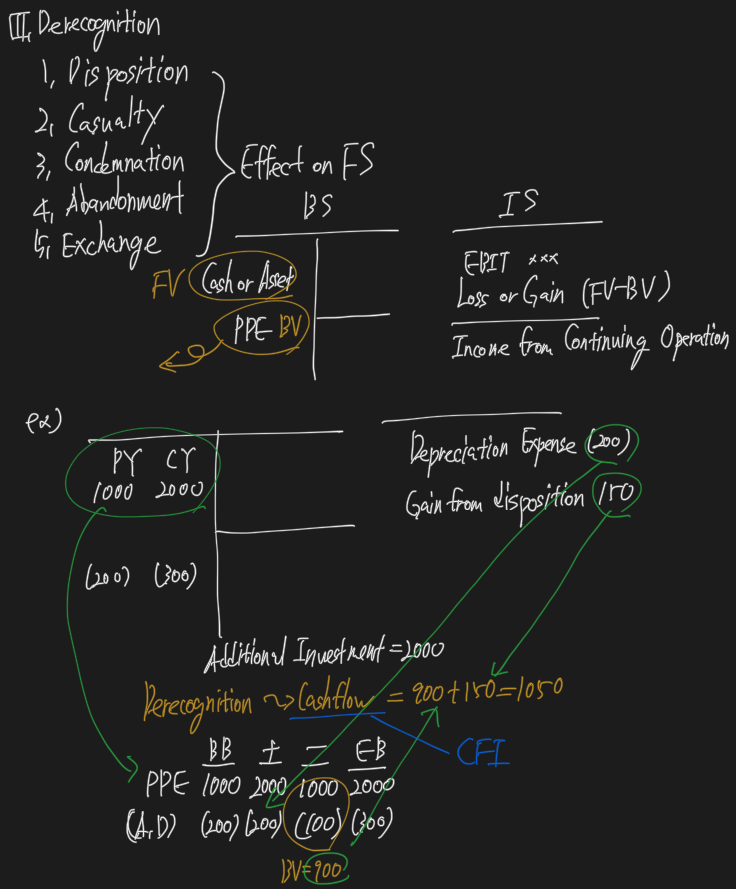 III. Derecognition
1. Disposition
2. Casualty
3. Condemnation
4. Abandonment
5. Exchange
Effect on FS
BS
IS
FV Cash or Asset
PPE BV
EBIT xxx
Loss or Gain (FV-BV)
Income from Continuing Operation
ex)
PY CY
1000 2000
(200) (300)
Depreciation Expense (200)
Gain from disposition 150
Additional Investment = 2000
Derecognition ~> Cashflow = 900+150=1050
CFI
BB + - EB
PPE 1000 2000 1000 2000
(A.D) (200) (200) (100) (300)
BV=900